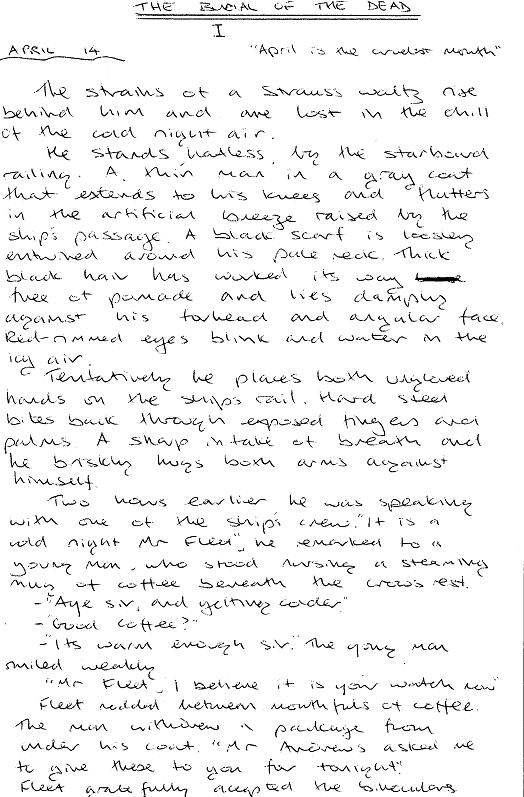 THE BURIAL OF THE DEAD
I
APRIL 14 "April is the cruelest month"
The strains of a Strauss waltz rise
behind him and are lost in the chill
of the cold night air.
He stands, hatless, by the starboard
railing. A thin man in a gray coat
that extends to his knees and flutters
in the artificial breeze raised by the
ship's passage. A black scarf is loosely
entwined around his pale neck. Thick
black hair has worked its way
free of pomade and lies damply
against his forhead and angular face.
Red-rimmed eyes blink and water in the
icy air.
Tentatively he places both ungloved
hands on the ship's rail. Hard steel
bites back through exposed fingers and
palms. A sharp intake of breath and
he briskly hugs both arms against
himself.
Two hours earlier he was speaking
with one of the ship's crew. "It is a
cold night Mr Fleet", he remarked to a
young man, who stood nursing a steaming
mug of coffee beneath the crow's nest.
-"Aye sir, and getting colder"
-"Good coffee?"
-"Its warm enough sir." The young man
smiled weakly
"Mr Fleet, I believe it is your watch now"
Fleet nodded between mouthfuls of coffee.
The man withdrew a package from
under his coat. "Mr Andrews asked me
to give these to you for tonight"
Fleet gratefully accepted the binoculars